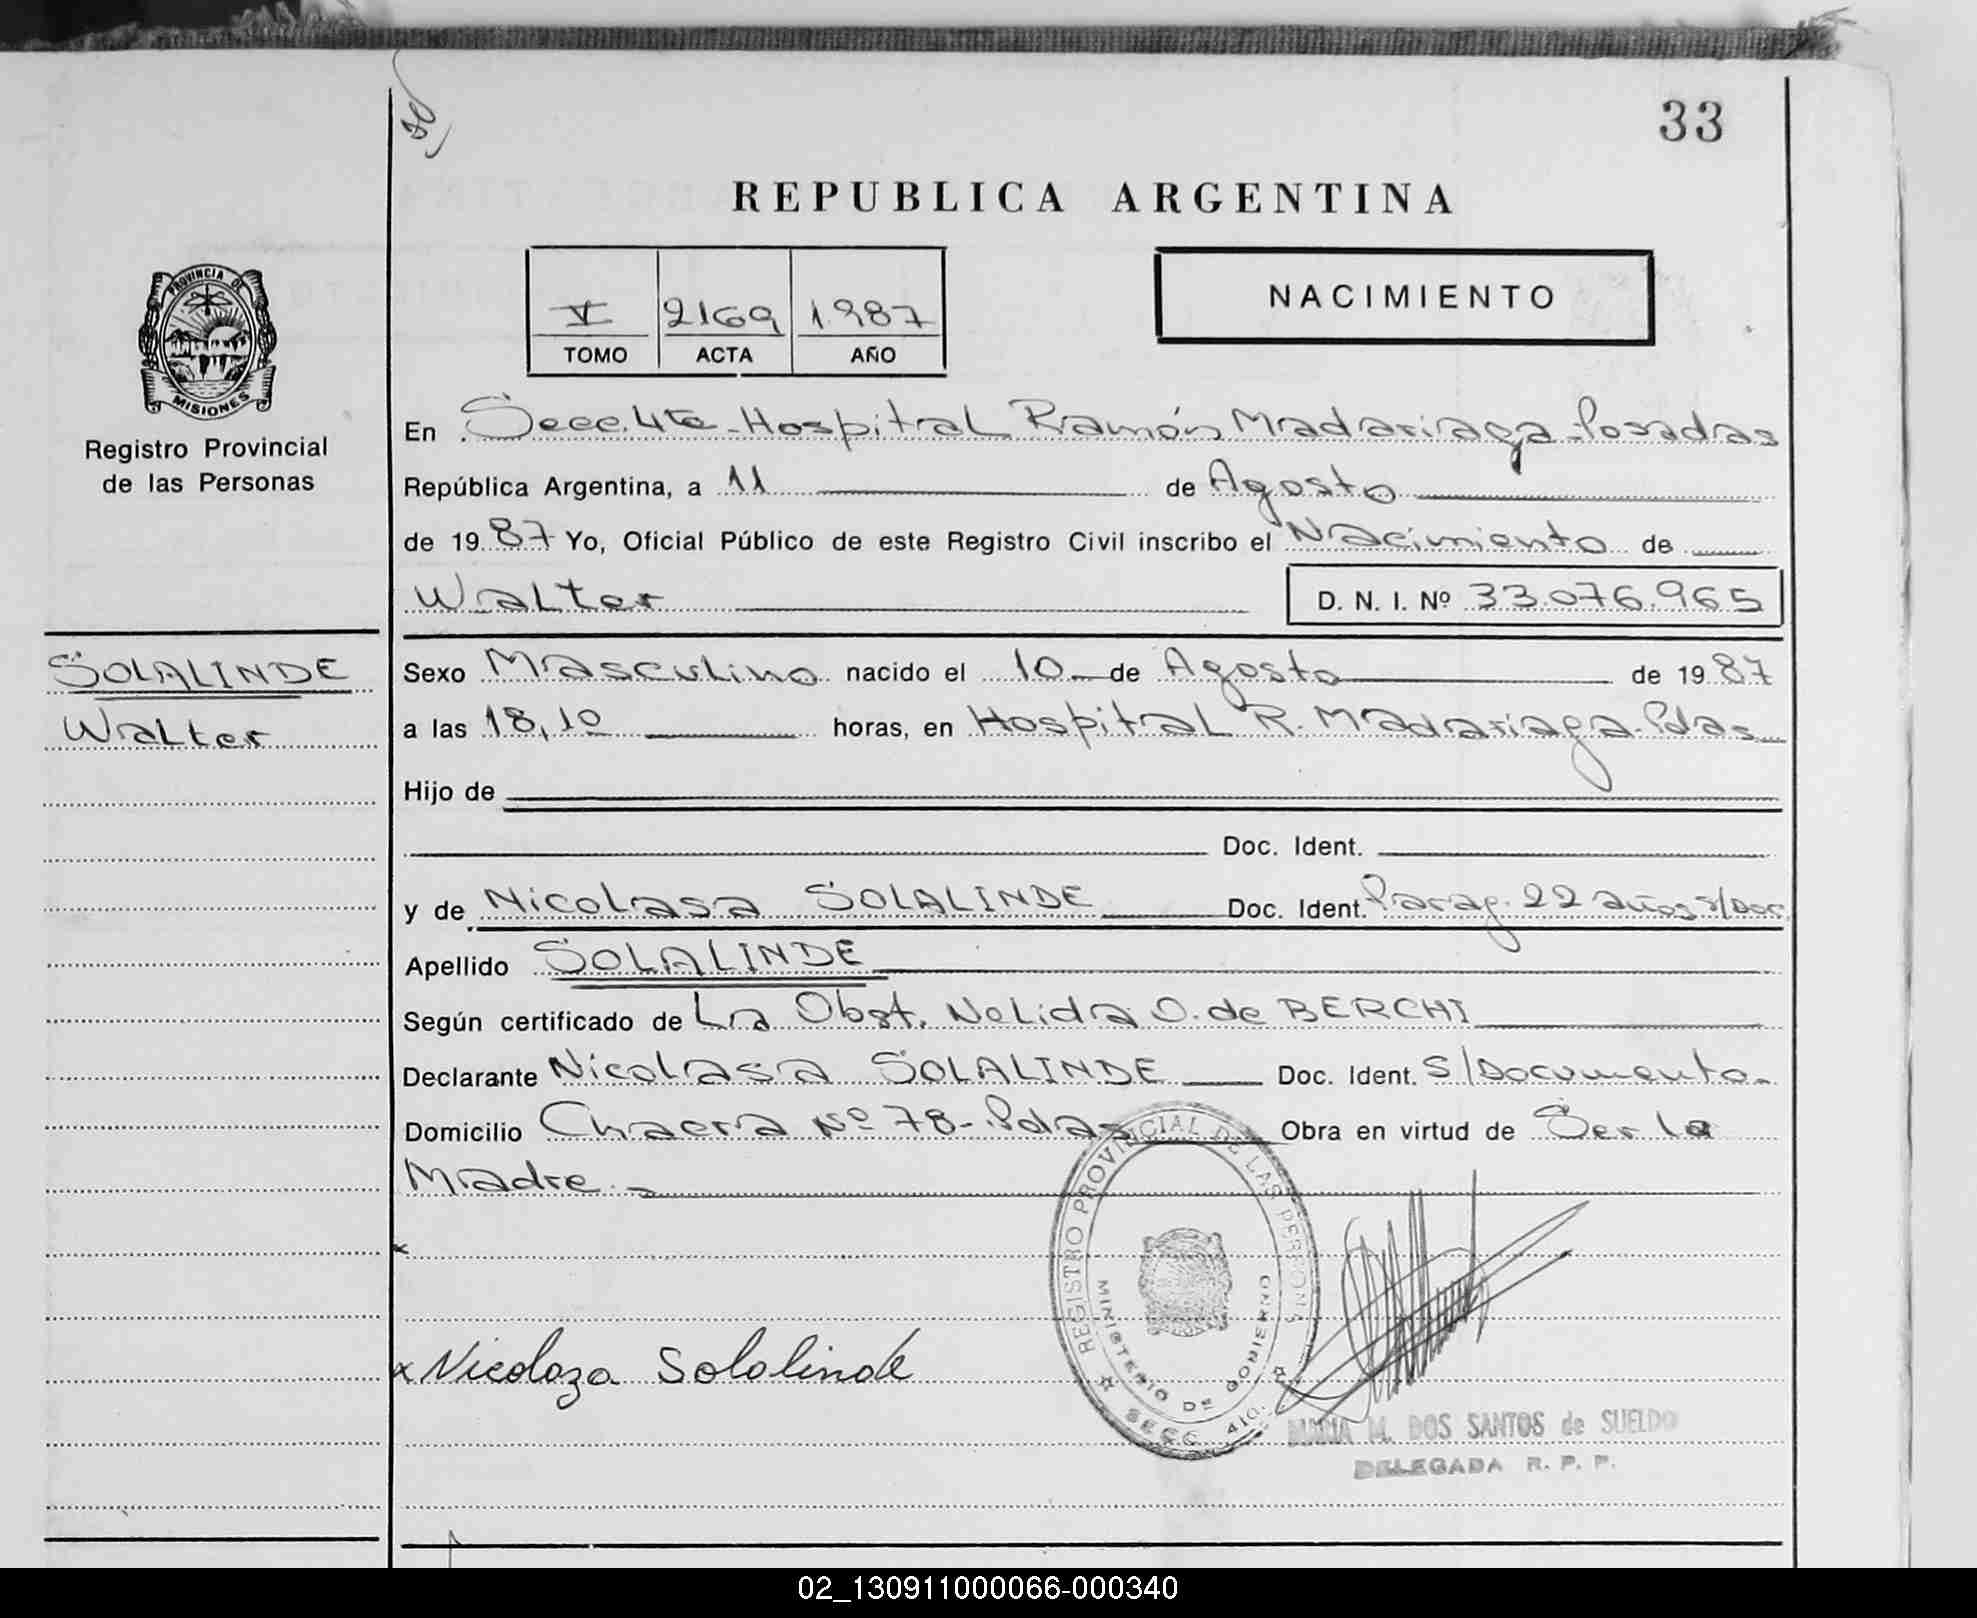 33
REPUBLICA ARGENTINA
V 2169 1.987
TOMO ACTA AÑO
NACIMIENTO
PROVINCIA DE
MISIONES
Registro Provincial
de las Personas
En Secc. 4ta - Hospital Ramón Madariaga - Posadas
República Argentina, a 11 de Agosto
de 1987 Yo, Oficial Público de este Registro Civil inscribo el Nacimiento de
Walter D. N. I. Nº 33.076.965
SOLALINDE
Walter
Sexo Masculino nacido el 10 de Agosto de 1987
a las 18,10 horas, en Hospital R. Madariaga - Pdas
Hijo de
Doc. Ident.
y de Nicolasa SOLALINDE Doc. Ident. Parag. 22 años s/Doc
Apellido SOLALINDE
Según certificado de La Obst. Nelida O. de BERCHI
Declarante Nicolasa SOLALINDE Doc. Ident. S/Documento
Domicilio Chacra Nº 78 - Pdas Obra en virtud de Ser la
Madre.-
REGISTRO PROVINCIAL DE LAS PERSONAS
MINISTERIO DE GOBIERNO
SECC. 4ta.
x Nicolaza Sololinde
MARIA M. DOS SANTOS de SUELDO
DELEGADA R. P. P.
02_130911000066-000340